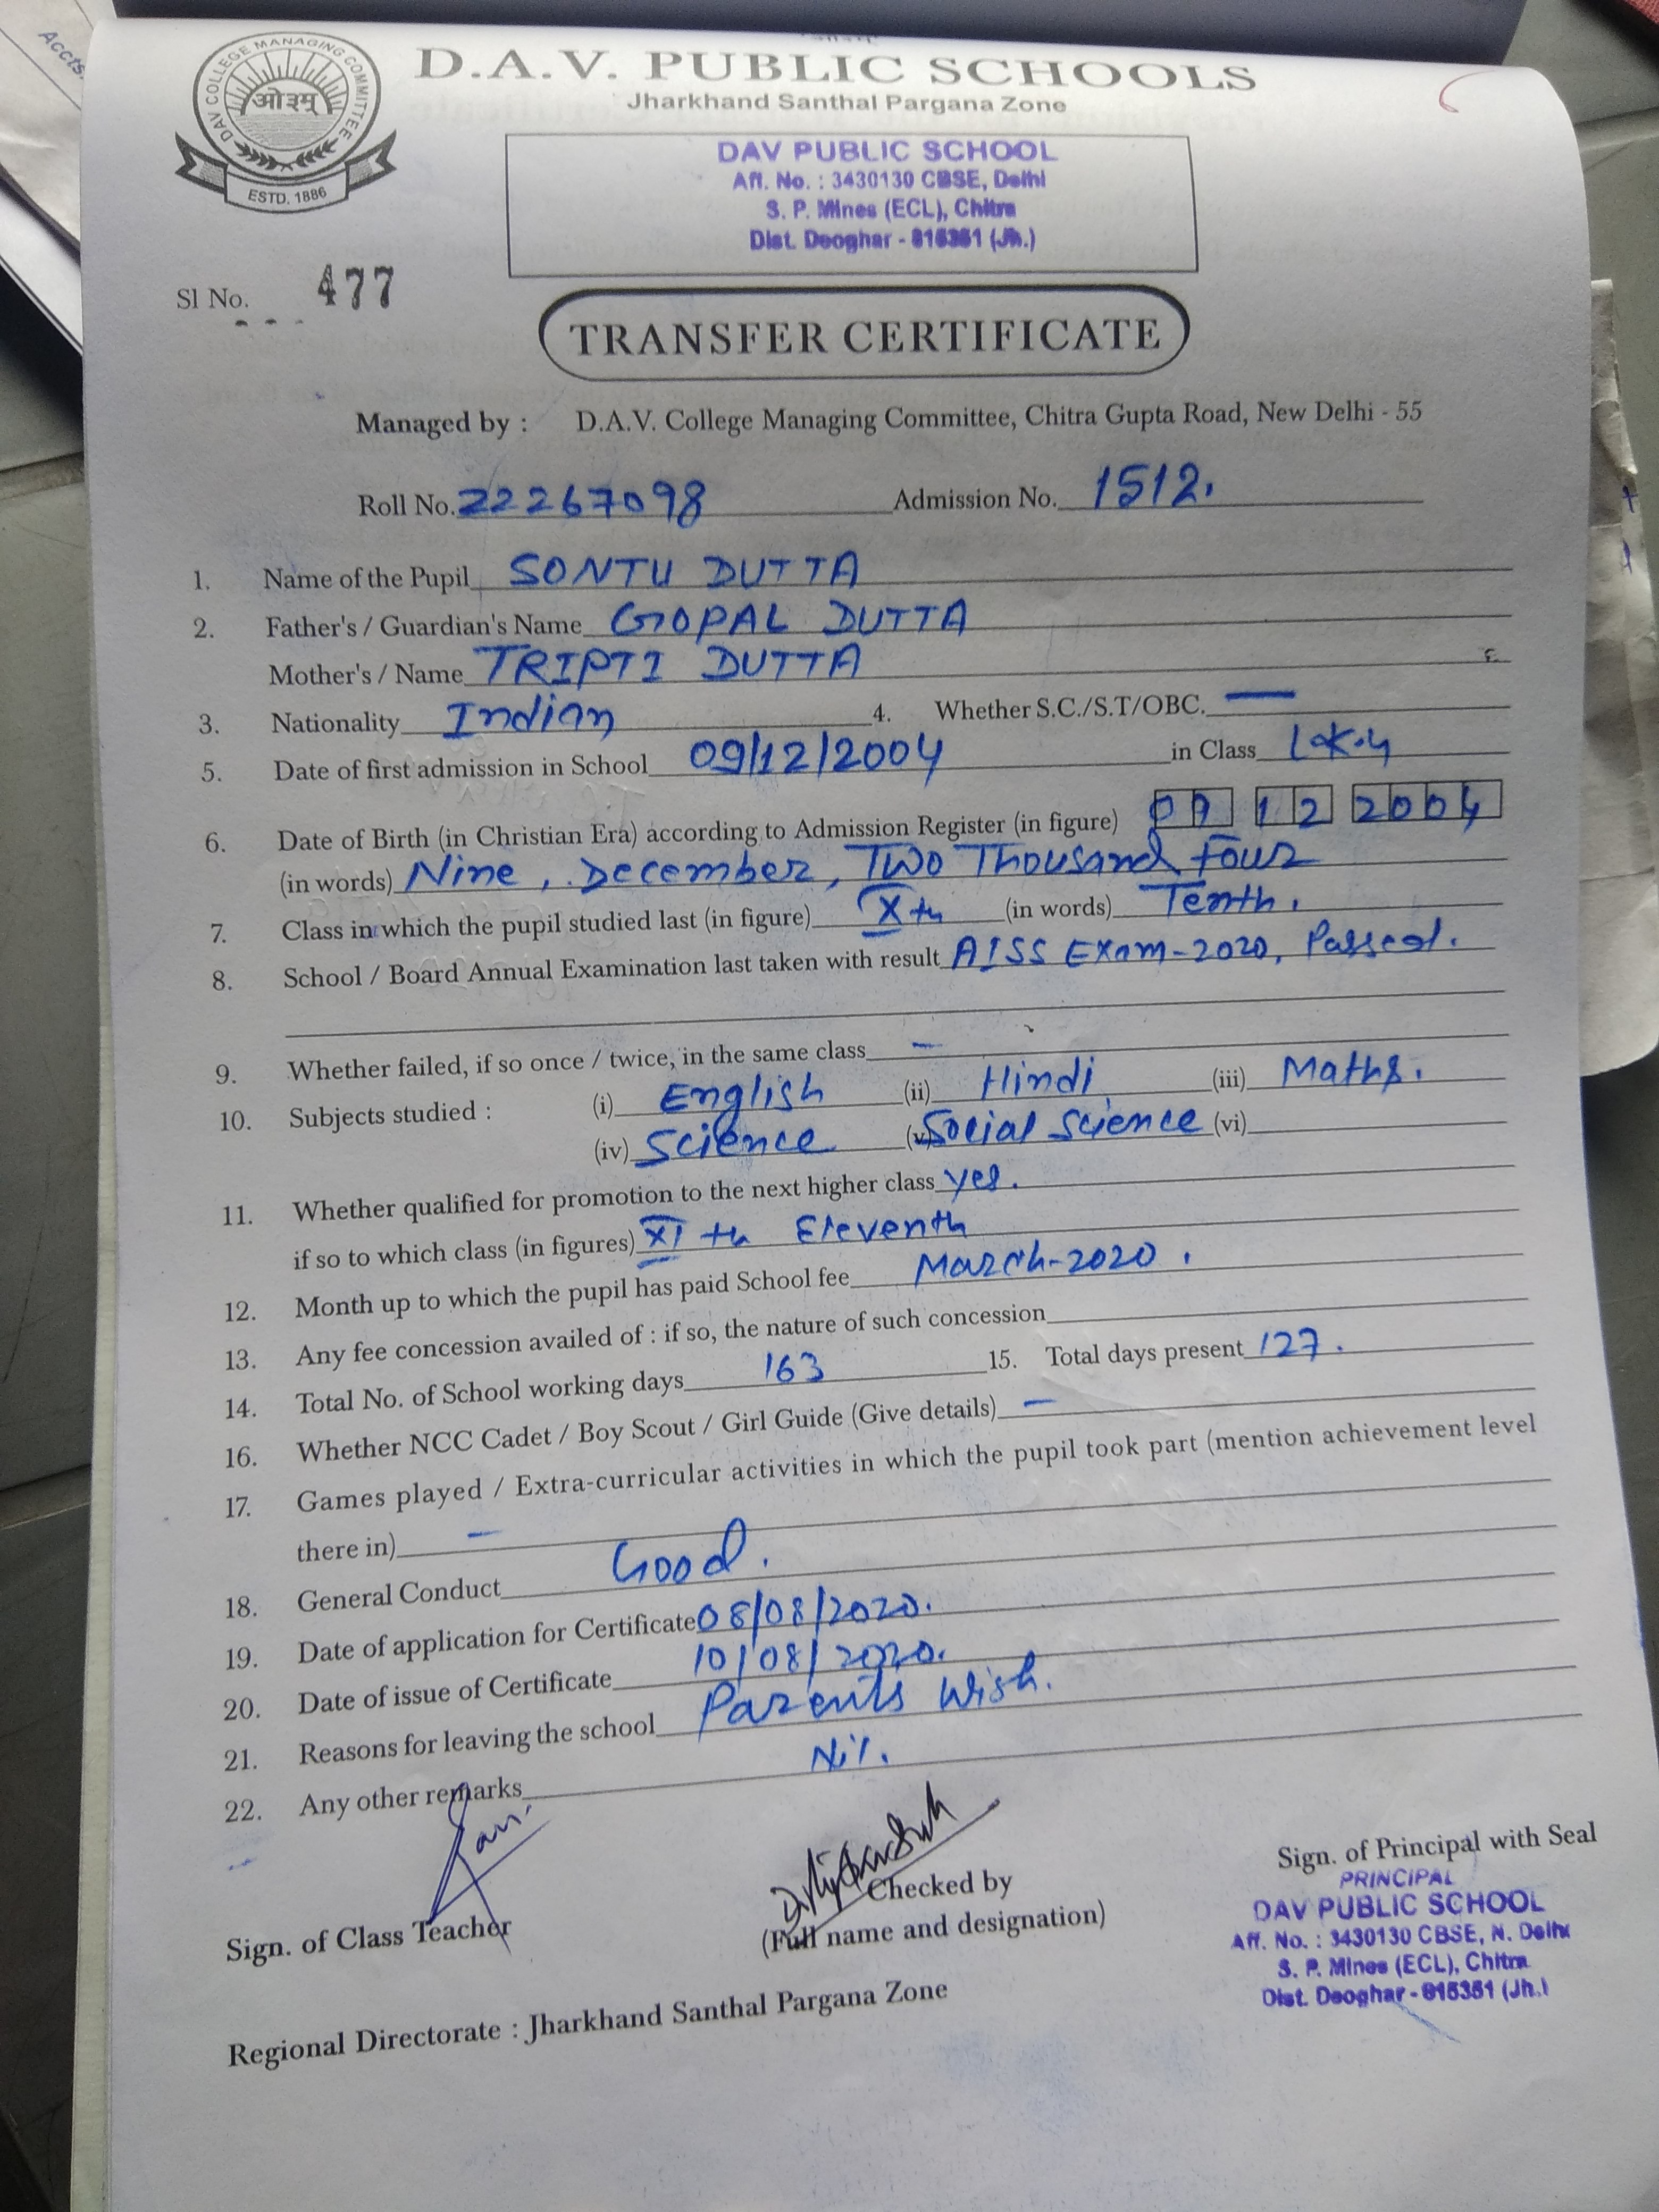 Accts.
DAV COLLEGE MANAGING COMMITTEE
ओ३म्
ESTD. 1886
D.A.V. PUBLIC SCHOOLS
Jharkhand Santhal Pargana Zone
DAV PUBLIC SCHOOL
Aff. No. : 3430130 CBSE, Delhi
S. P. Mines (ECL), Chitra
Dist. Deoghar - 815351 (Jh.)
Sl No. 477
TRANSFER CERTIFICATE
Managed by : D.A.V. College Managing Committee, Chitra Gupta Road, New Delhi - 55
Roll No. 22267098 Admission No. 1512.
1. Name of the Pupil SONTU DUTTA
2. Father's / Guardian's Name GOPAL DUTTA
Mother's / Name TRIPTI DUTTA
3. Nationality Indian 4. Whether S.C./S.T/OBC. —
5. Date of first admission in School 09/12/2004 in Class L.K.G
6. Date of Birth (in Christian Era) according to Admission Register (in figure) 09 12 2004
(in words) Nine, December, Two Thousand Four
7. Class in which the pupil studied last (in figure) Xth (in words) Tenth.
8. School / Board Annual Examination last taken with result AISS Exam-2020, Passed.
9. Whether failed, if so once / twice, in the same class —
10. Subjects studied : (i) English (ii) Hindi (iii) Maths.
(iv) Science (v) Social Science (vi)
11. Whether qualified for promotion to the next higher class yes.
if so to which class (in figures) XIth Eleventh
12. Month up to which the pupil has paid School fee March-2020.
13. Any fee concession availed of : if so, the nature of such concession
14. Total No. of School working days 163 15. Total days present 127.
16. Whether NCC Cadet / Boy Scout / Girl Guide (Give details) —
17. Games played / Extra-curricular activities in which the pupil took part (mention achievement level
there in) —
18. General Conduct Good.
19. Date of application for Certificate 08/08/2020.
20. Date of issue of Certificate 10/08/2020.
21. Reasons for leaving the school Parents Wish.
22. Any other remarks Nil.
Sign. of Class Teacher
Checked by
(Full name and designation)
Sign. of Principal with Seal
PRINCIPAL
DAV PUBLIC SCHOOL
Aff. No. : 3430130 CBSE, N. Delhi
S. P. Mines (ECL), Chitra
Dist. Deoghar - 815351 (Jh.)
Regional Directorate : Jharkhand Santhal Pargana Zone